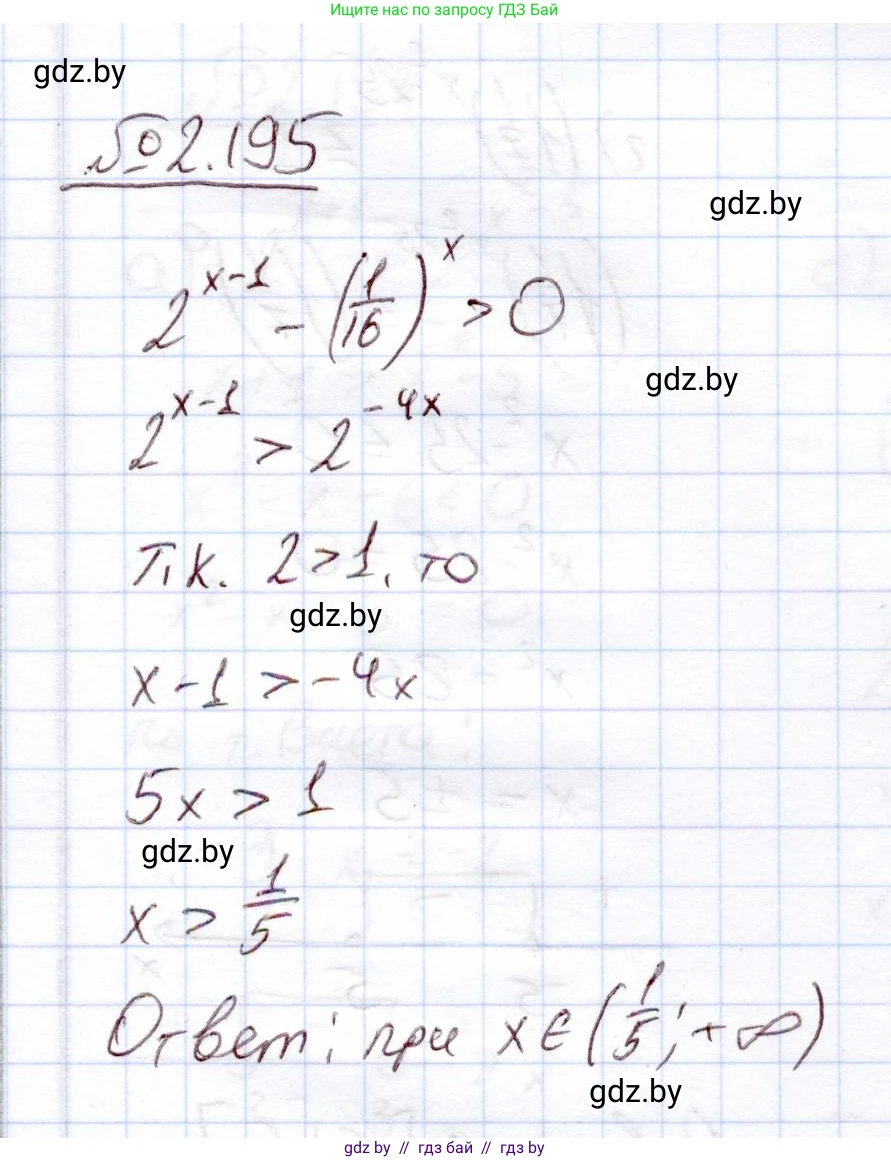 Ищите нас по запросу ГДЗ Бай
gdz.by
№2.195
gdz.by
2^{x-1} - (1/16)^x > 0
gdz.by
2^{x-1} > 2^{-4x}
Т.к. 2>1, то
gdz.by
x-1 > -4x
5x > 1
gdz.by
x > 1/5
Ответ: при x ∈ (1/5; +∞)
gdz.by
gdz.by // гдз бай // gdz.by